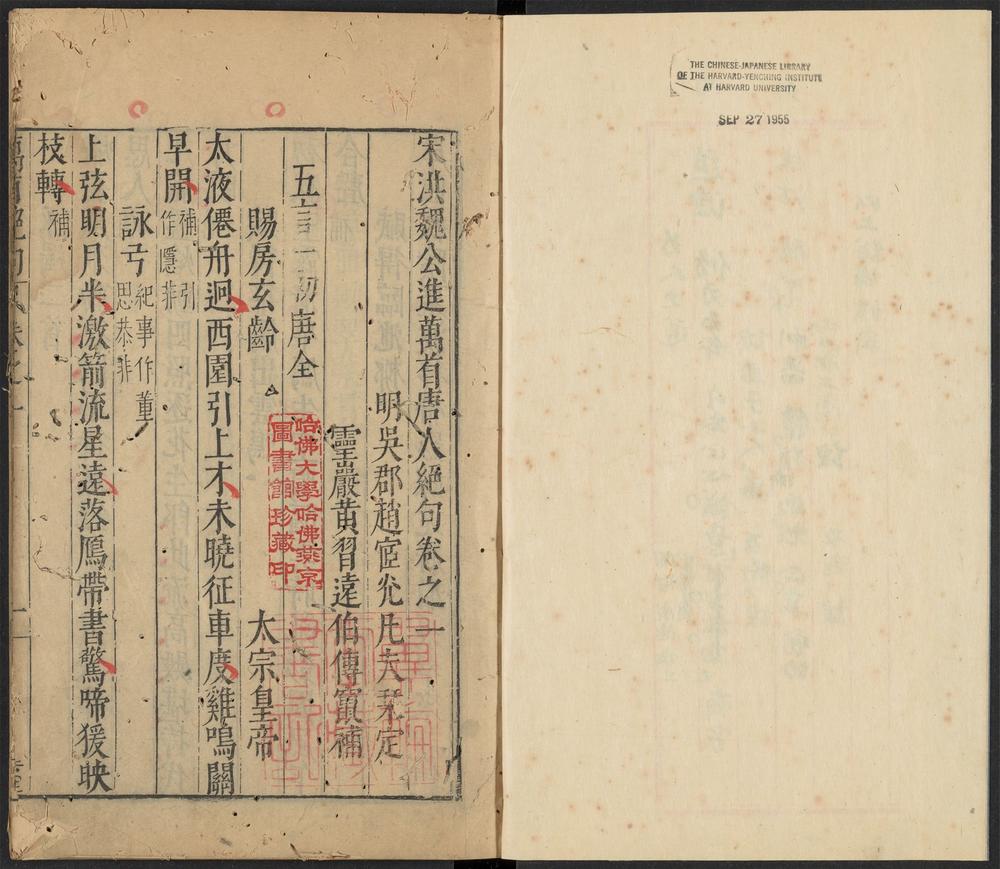 THE CHINESE-JAPANESE LIBRARY
OF THE HARVARD-YENCHING INSTITUTE
AT HARVARD UNIVERSITY
SEP 27 1955
宋洪魏公進萬首唐人絕句卷之一
明吳郡趙宧光凡夫栞定
靈巖黃習遠伯傳竄補
五言一初唐一
賜房玄齡
太宗皇帝
太液僊舟迥西園引上才未曉征車度雞鳴關
早開
補娰引
作隱非
詠弓
紀事作董
思恭非
上弦明月半激箭流星遠落鴈帶書驚啼猨映
枝轉
補
哈佛大學哈佛燕京
圖書館珍藏印